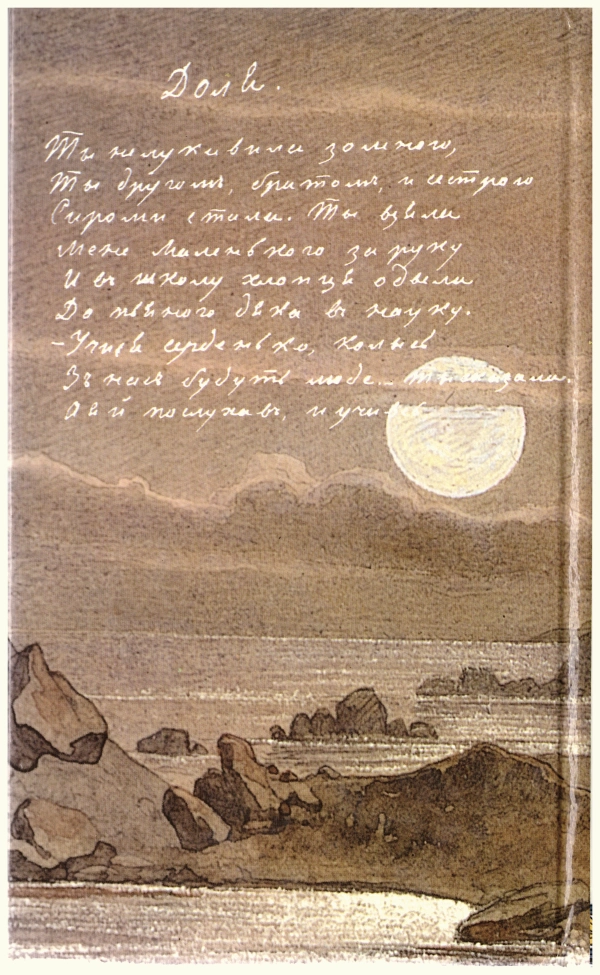 Доля.
Ты нелукавила зо мною,
Ты другомъ, братомъ, и сестрою
Сироми стала. Ты взяла
Мене маленького за руку
И въ школу хлопця одвела
До пьяного дяка въ науку.
-Учися серденько, колысь
Зъ насъ будуть люде... ты сказала.
А я й послухавъ, и учивсь